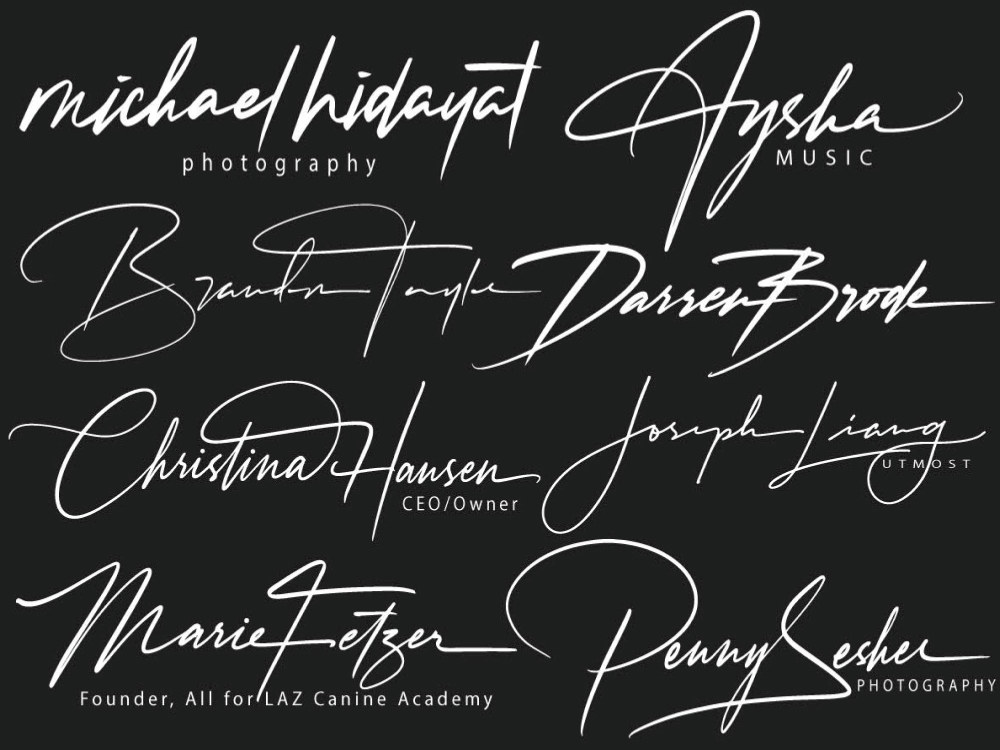 michael hidayat
photography
Aysha
MUSIC
Brandon Taylor
Darren Brode
Christina Hansen
CEO/Owner
Joseph Liang
UTMOST
Marie Fetzer
Founder, All for LAZ Canine Academy
Penny Lesher
PHOTOGRAPHY